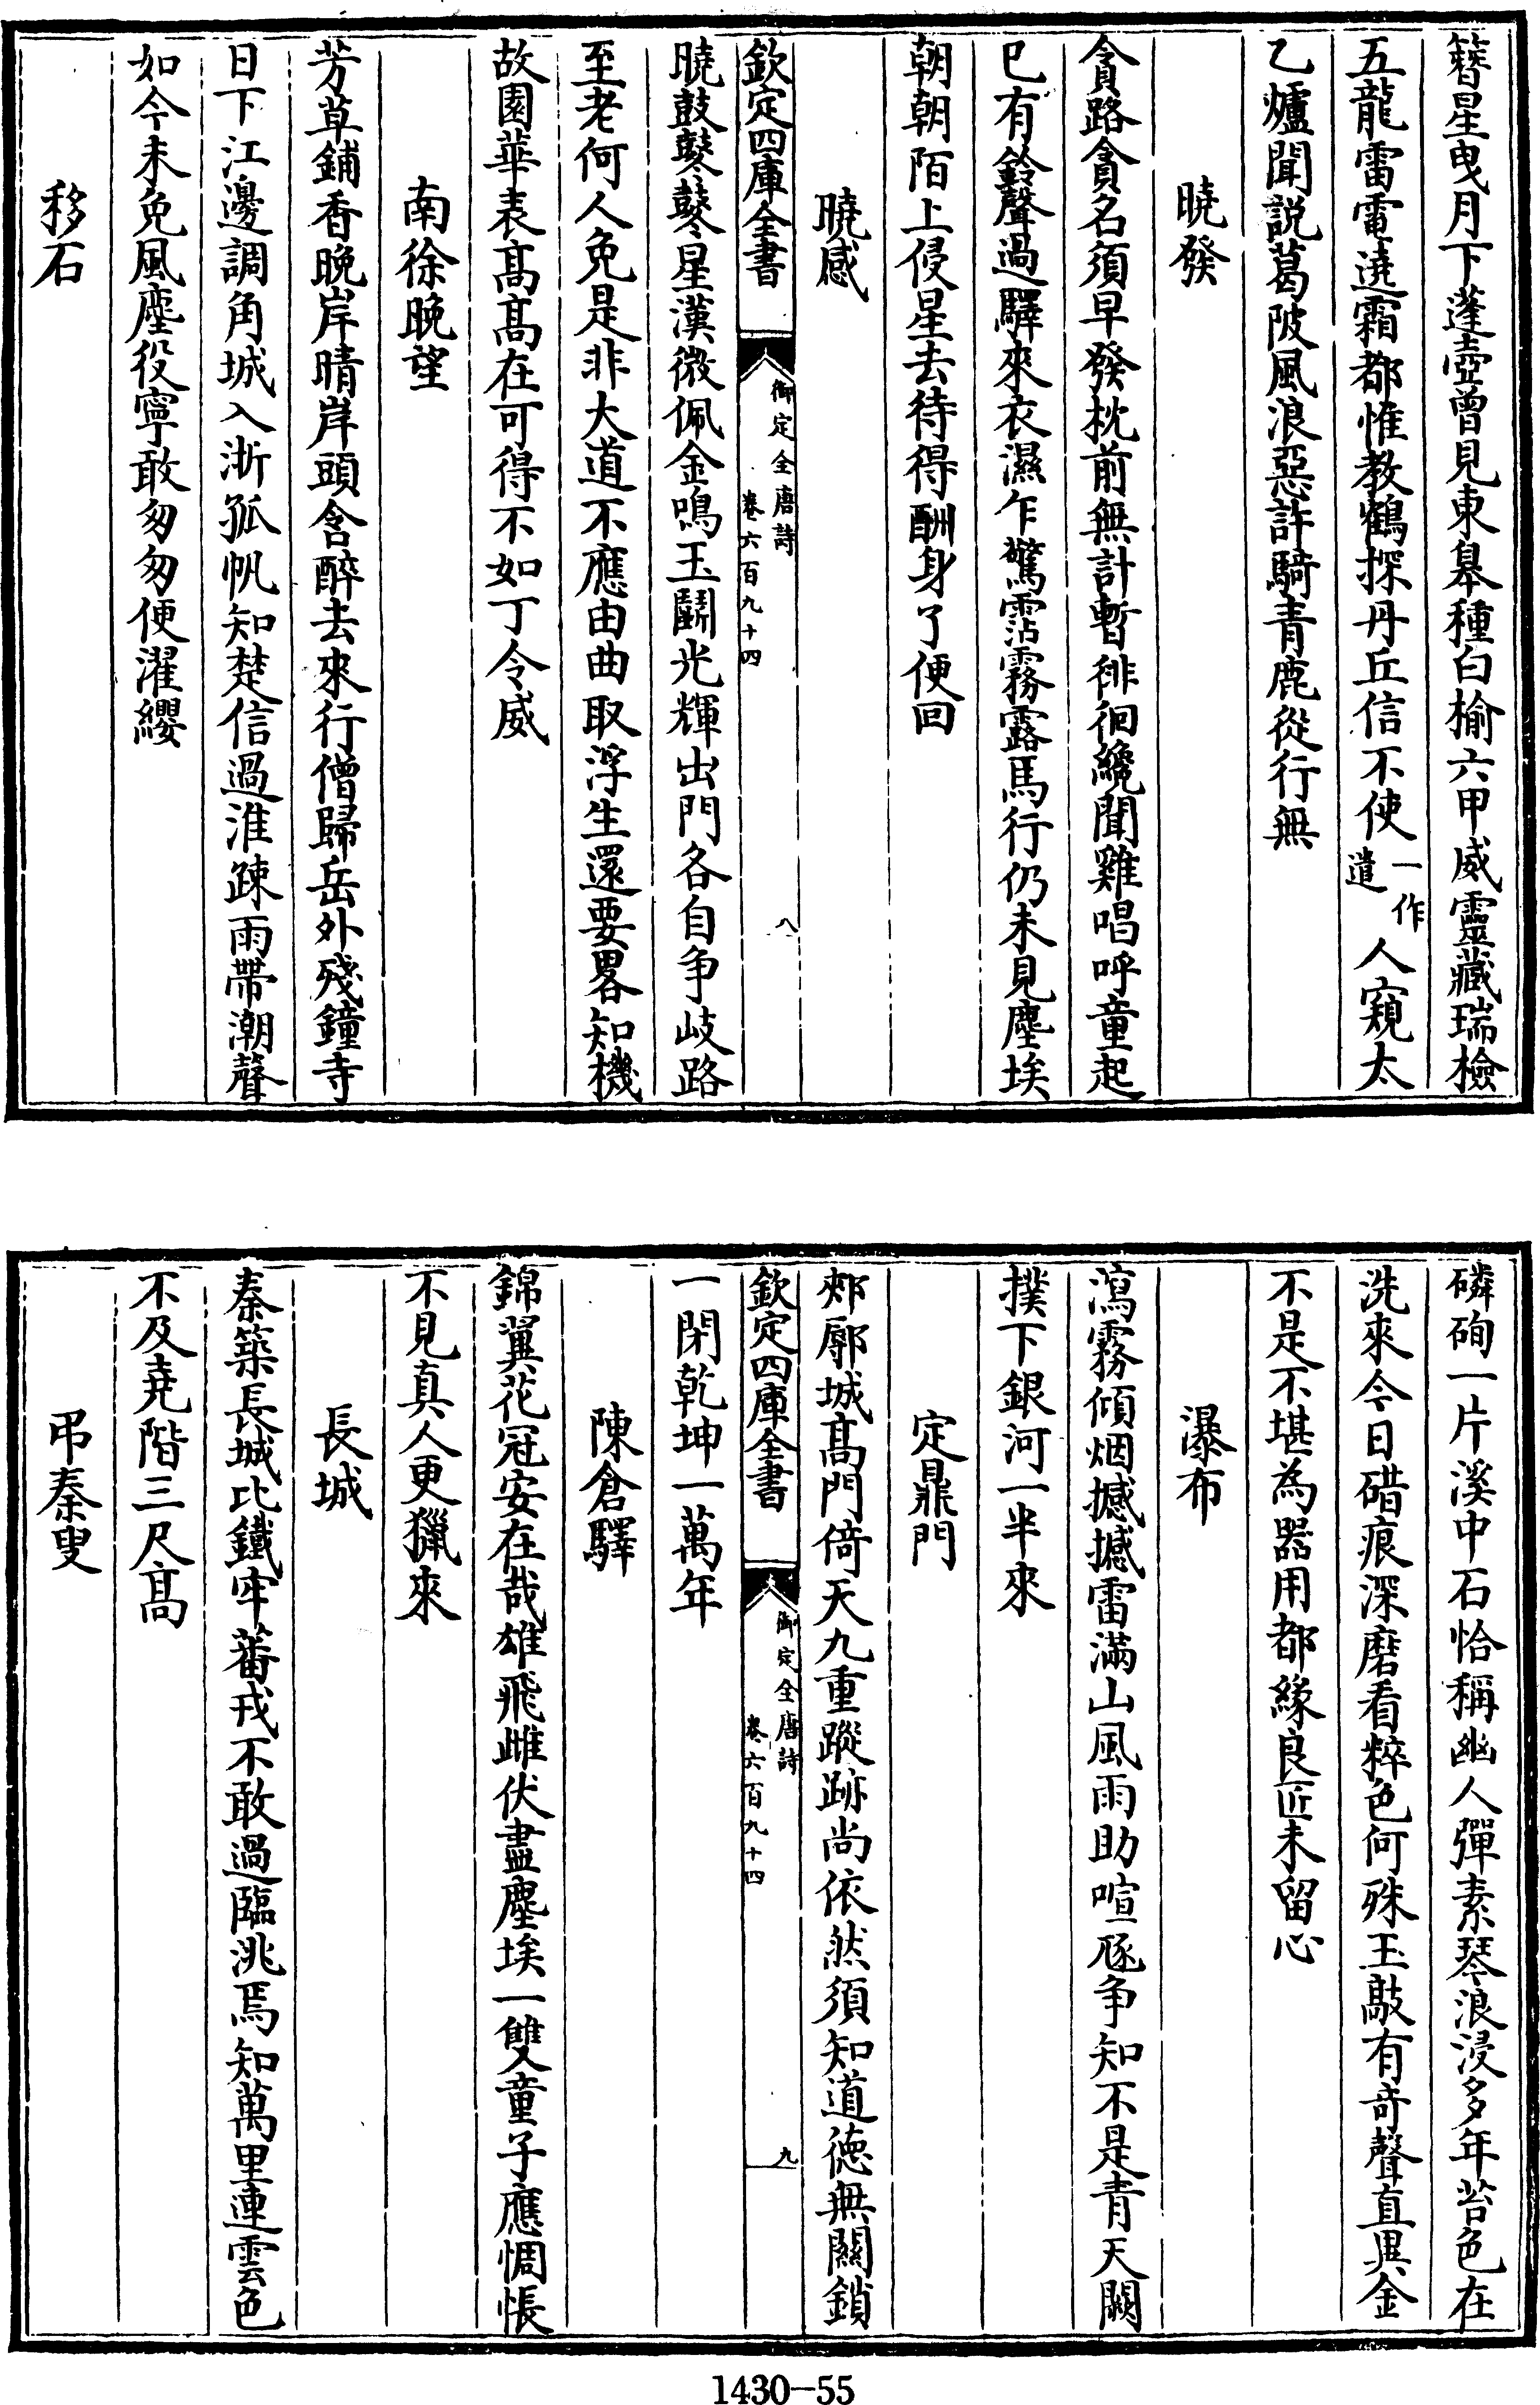 簪星曳月下蓬壺曾見東皋種白榆六甲威靈藏瑞檢
五龍雷雷遶霜都惟教鶴探丹丘信不使一作遣人窺太
乙爐聞説葛陂風浪惡許騎青鹿從行無
曉發
貪路貪名須早發枕前無計暫徘徊纔聞雞唱呼童起
已有鈴聲過驛來衣濕乍驚霑霧露馬行仍未見塵埃
朝朝陌上侵星去待得酬身了便回
曉感
欽定四庫全書
御定全唐詩
卷六百九十四
八
曉鼓鼕鼕星漢微佩金鳴玉鬭光輝出門各自争岐路
至老何人免是非大道不應由曲取浮生還要畧知機
故園華表髙髙在可得不如丁令威
南徐晚望
芳草鋪香晚岸晴岸頭含醉去來行僧歸岳外殘鐘寺
日下江邊調角城入浙孤帆知楚信過淮疎雨帶潮聲
如今未免風塵役寧敢匆匆便濯纓
移石
磷磵一片溪中石恰稱幽人彈素琴浪浸多年苔色在
洗來今日碏痕深磨看粹色何殊玉敲有奇聲直異金
不是不堪為器用都緣良匠未留心
瀑布
瀉霧傾烟撼撼雷滿山風雨助喧豗争知不是青天闕
撲下銀河一半來
定鼎門
郟鄏城髙門倚天九重蹤跡尚依然須知道德無關鎖
欽定四庫全書
御定全唐詩
卷六百九十四
九
一閉乾坤一萬年
陳倉驛
錦翼花冠安在哉雄飛雌伏盡塵埃一雙童子應惆悵
不見真人更獵來
長城
秦築長城比鐵牢蕃戎不敢過臨洮焉知萬里連雲色
不及堯階三尺髙
弔秦叟
1430-55